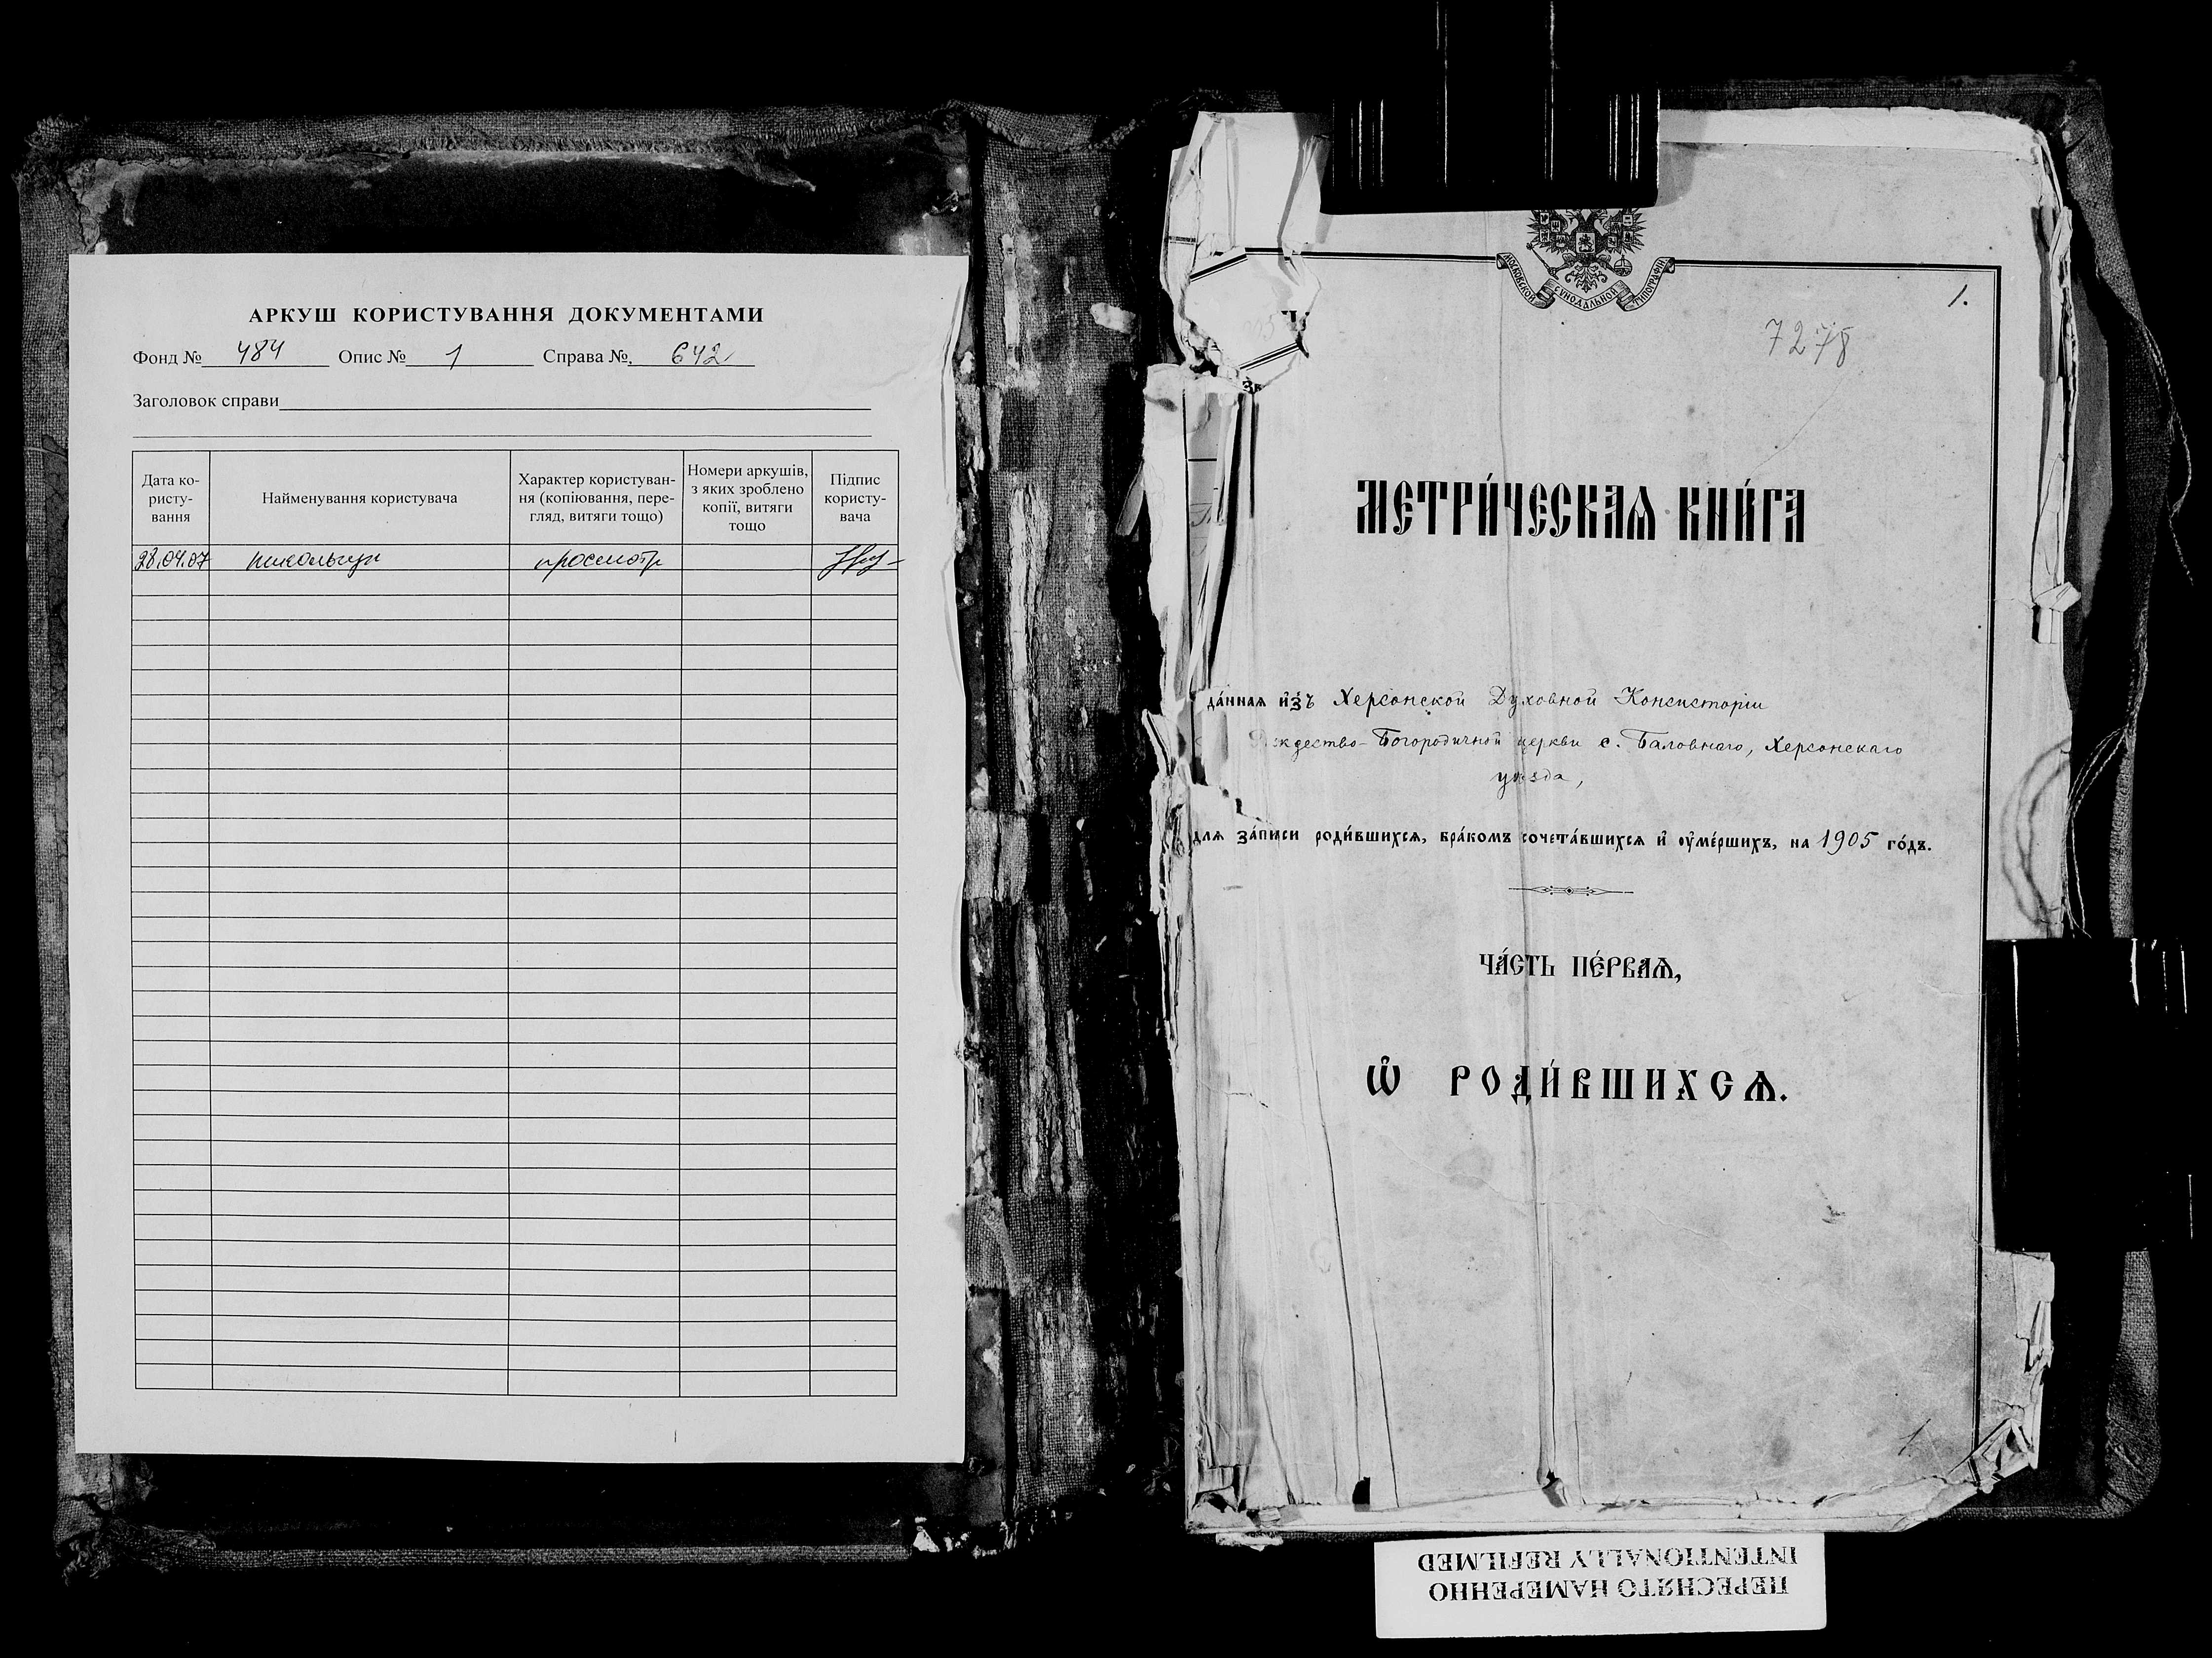 АРКУШ КОРИСТУВАННЯ ДОКУМЕНТАМИ
Фонд № 484 Опис № 1 Справа №. 642
Заголовок справи
Дата ко-
ристу-
вання
Найменування користувача
Характер користуван-
ня (копіювання, пере-
гляд, витяги тощо)
Номери аркушів,
з яких зроблено
копії, витяги
тощо
Підпис
користу-
вача
28.04.07 просмотр
МОСКОВСКОЙ СѴНОДАЛЬНОЙ ТИПОГРАФІИ
1.
7278
МЕТРИ́ЧЕСКАѦ КНИ́ГА
да́ннаѧ и҆́зъ Херсонской Духовной Консисторіи
Рождество-Богородичной церкви с. Баловнаго, Херсонскаго
уѣзда,
длѧ за́писи роди́вшихсѧ, бра́комъ сочета́вшихсѧ и҆ оу҆ме́ршихъ, на 1905 го́дъ.
ЧА́СТЬ ПЕ́РВАѦ,
Ѽ РОДИ́ВШИХСѦ.
1
ПЕРЕСНЯТО НАМЕРЕННО
INTENTIONALLY REFILMED